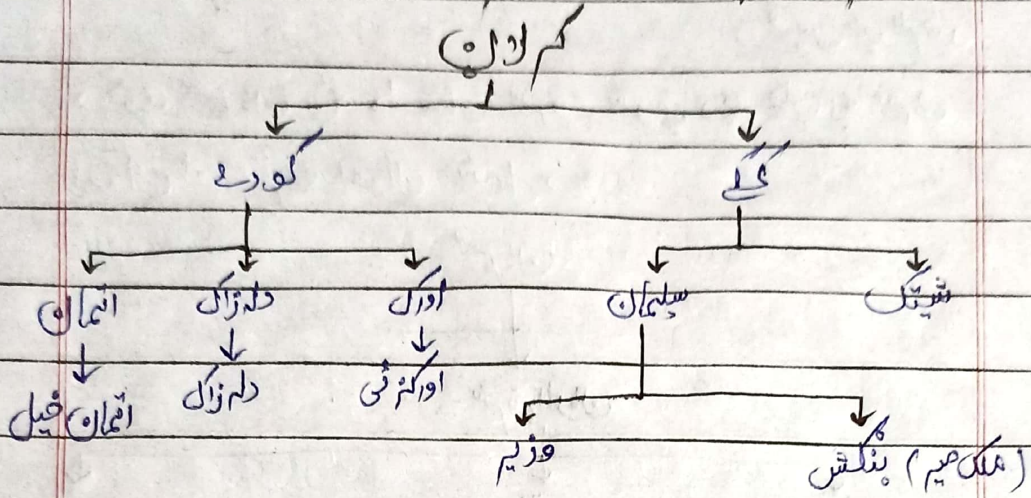 کرلان
ککے کودے
شیتک سلیمان اورک دلہ زاک اتمان
اورکزئی دلہ زاک اتمان خیل
(ملک میر) بنگش وزیر